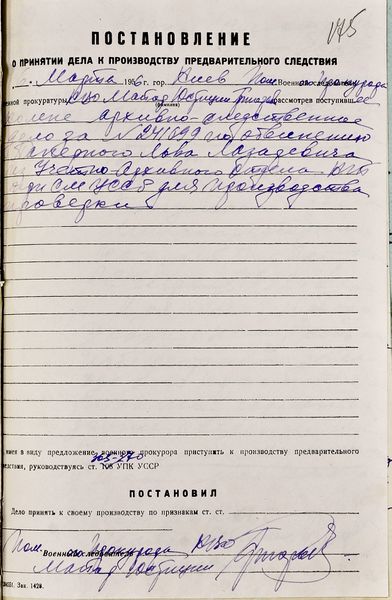 175
ПОСТАНОВЛЕНИЕ
О ПРИНЯТИИ ДЕЛА К ПРОИЗВОДСТВУ ПРЕДВАРИТЕЛЬНОГО СЛЕДСТВИЯ
Марта 1956 г. гор. Киев Пом. Военного прокурора
енной прокуратуры КВО Майор Юстиции рассмотрев поступившее
(фамилия)
ко мне архивно-следственное
дело за № 241899 по обвинению
Лазаревича
из Учетно-Архивного отдела КГБ
при СМ УССР для производства
проверки
имея в виду предложение военного прокурора приступить к производству предварительного
следствия, руководствуясь ст. 108 УПК УССР
ПОСТАНОВИЛ
Дело принять к своему производству по признакам ст. ст.
Пом. Военного прокурора КВО
Майор Юстиции
Зак. 1428.